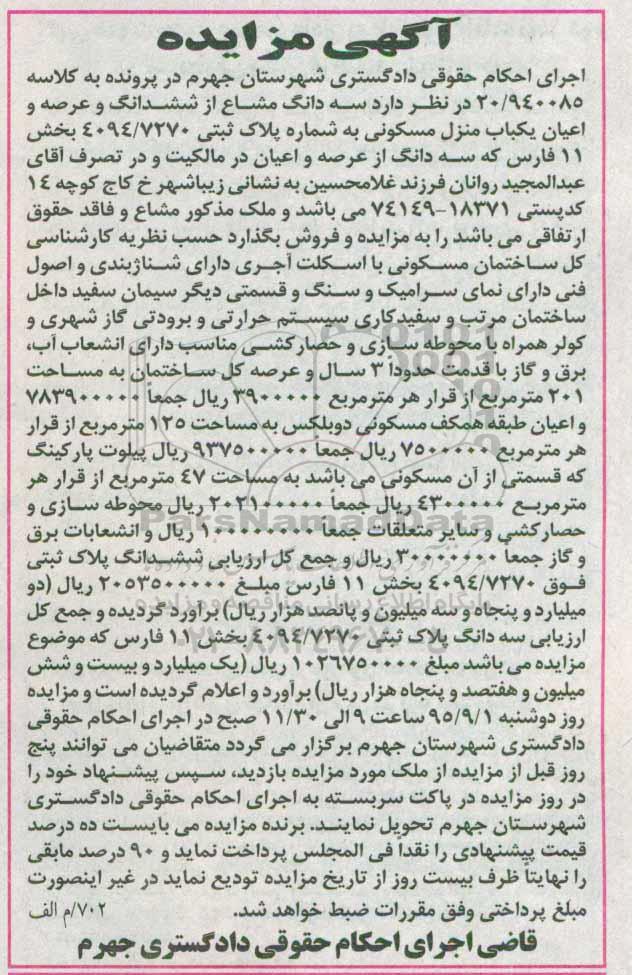 آگهی مزایده
اجرای احکام حقوقی دادگستری شهرستان جهرم در پرونده به کلاسه
۲۰/۹۴۰۰۸۵ در نظر دارد سه دانگ مشاع از ششدانگ و عرصه و
اعیان یکباب منزل مسکونی به شماره پلاک ثبتی ۴۰۹۴/۷۲۷۰ بخش
۱۱ فارس که سه دانگ از عرصه و اعیان در مالکیت و در تصرف آقای
عبدالمجید روانان فرزند غلامحسین به نشانی زیباشهر خ کاج کوچه ۱۴
کدپستی ۱۸۳۷۱-۷۴۱۴۹ می باشد و ملک مذکور مشاع و فاقد حقوق
ارتفاقی می باشد را به مزایده و فروش بگذارد حسب نظریه کارشناسی
کل ساختمان مسکونی با اسکلت آجری دارای شناژبندی و اصول
فنی دارای نمای سرامیک و سنگ و قسمتی دیگر سیمان سفید داخل
ساختمان مرتب و سفیدکاری سیستم حرارتی و برودتی گاز شهری و
کولر همراه با محوطه سازی و حصارکشی مناسب دارای انشعاب آب،
برق و گاز با قدمت حدوداً ۳ سال و عرصه کل ساختمان به مساحت
۲۰۱ مترمربع از قرار هر مترمربع ۳۹۰۰۰۰۰ ریال جمعاً ۷۸۳۹۰۰۰۰۰
و اعیان طبقه همکف مسکونی دوبلکس به مساحت ۱۲۵ مترمربع از قرار
هر مترمربع ۷۵۰۰۰۰۰ ریال جمعاً ۹۳۷۵۰۰۰۰۰ ریال پیلوت پارکینگ
که قسمتی از آن مسکونی می باشد به مساحت ۴۷ مترمربع از قرار هر
مترمربع ۴۳۰۰۰۰۰ ریال جمعاً ۲۰۲۱۰۰۰۰۰ ریال محوطه سازی و
حصارکشی و سایر متعلقات جمعاً ۱۰۰۰۰۰۰۰۰ ریال و انشعابات برق
و گاز جمعاً ۳۰۰۰۰۰۰۰ ریال و جمع کل ارزیابی ششدانگ پلاک ثبتی
فوق ۴۰۹۴/۷۲۷۰ بخش ۱۱ فارس مبلغ ۲۰۵۳۵۰۰۰۰۰ ریال (دو
میلیارد و پنجاه و سه میلیون و پانصد هزار ریال) برآورد گردیده و جمع کل
ارزیابی سه دانگ پلاک ثبتی ۴۰۹۴/۷۲۷۰ بخش ۱۱ فارس که موضوع
مزایده می باشد مبلغ ۱۰۲۶۷۵۰۰۰۰ ریال (یک میلیارد و بیست و شش
میلیون و هفتصد و پنجاه هزار ریال) برآورد و اعلام گردیده است و مزایده
روز دوشنبه ۹۵/۹/۱ ساعت ۹ الی ۱۱/۳۰ صبح در اجرای احکام حقوقی
دادگستری شهرستان جهرم برگزار می گردد متقاضیان می توانند پنج
روز قبل از مزایده از ملک مورد مزایده بازدید، سپس پیشنهاد خود را
در روز مزایده در پاکت سربسته به اجرای احکام حقوقی دادگستری
شهرستان جهرم تحویل نمایند. برنده مزایده می بایست ده درصد
قیمت پیشنهادی را نقداً فی المجلس پرداخت نماید و ۹۰ درصد مابقی
را نهایتاً ظرف بیست روز از تاریخ مزایده تودیع نماید در غیر اینصورت
مبلغ پرداختی وفق مقررات ضبط خواهد شد. ۷۰۲/م الف
قاضی اجرای احکام حقوقی دادگستری جهرم
ParsNamadData